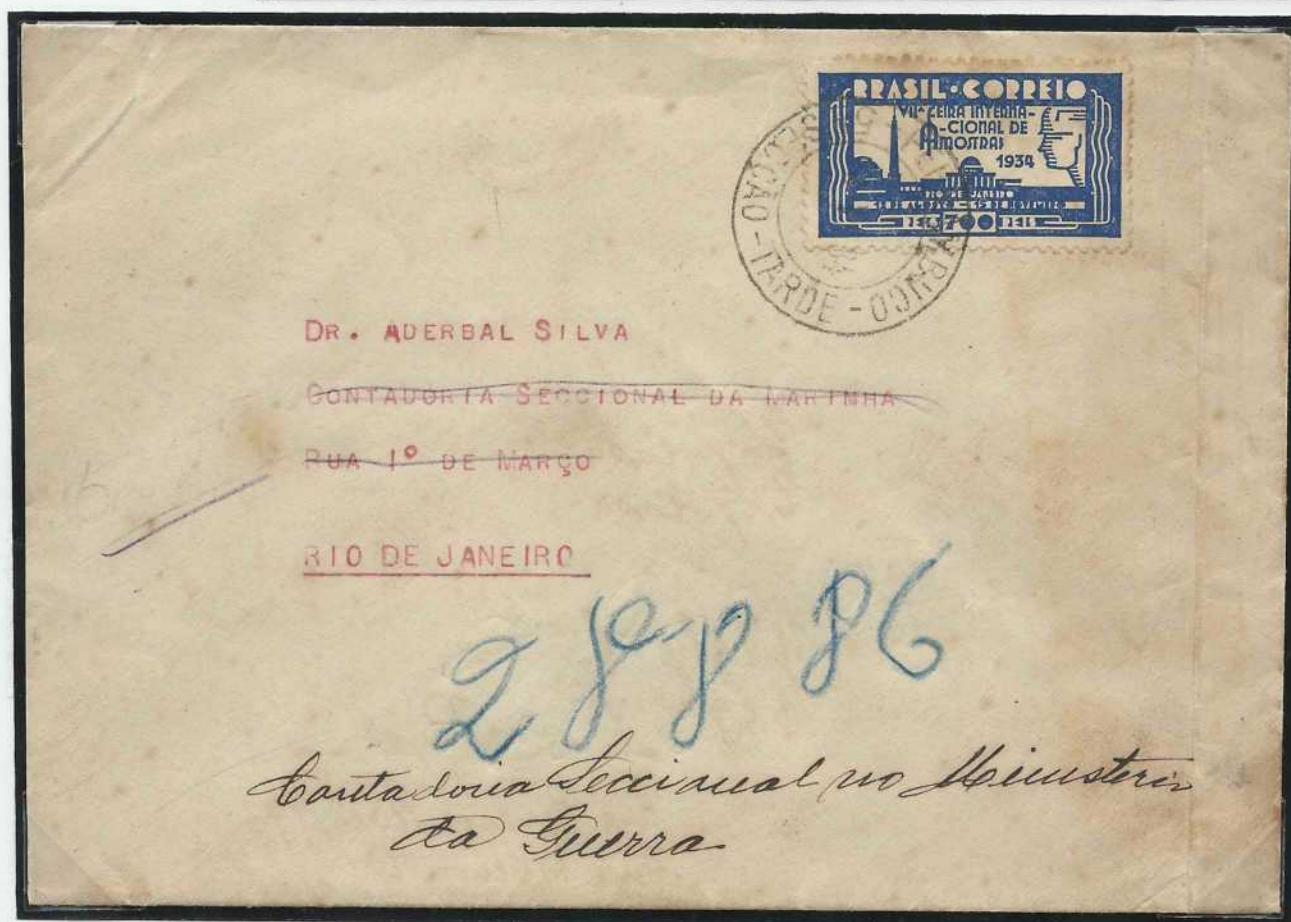 BRASIL·CORREIO
VIIª FEIRA INTERNA-
-CIONAL DE
AMOSTRAS
1934
RIO DE JANEIRO
12 DE AGOSTO - 15 DE NOVEMBRO
REIS 700 REIS
-TARDE-
DR. ADERBAL SILVA
CONTADORIA SECCIONAL DA MARINHA
RUA 1º DE MARÇO
RIO DE JANEIRO
Contadoria Seccional no Ministerio
da Guerra